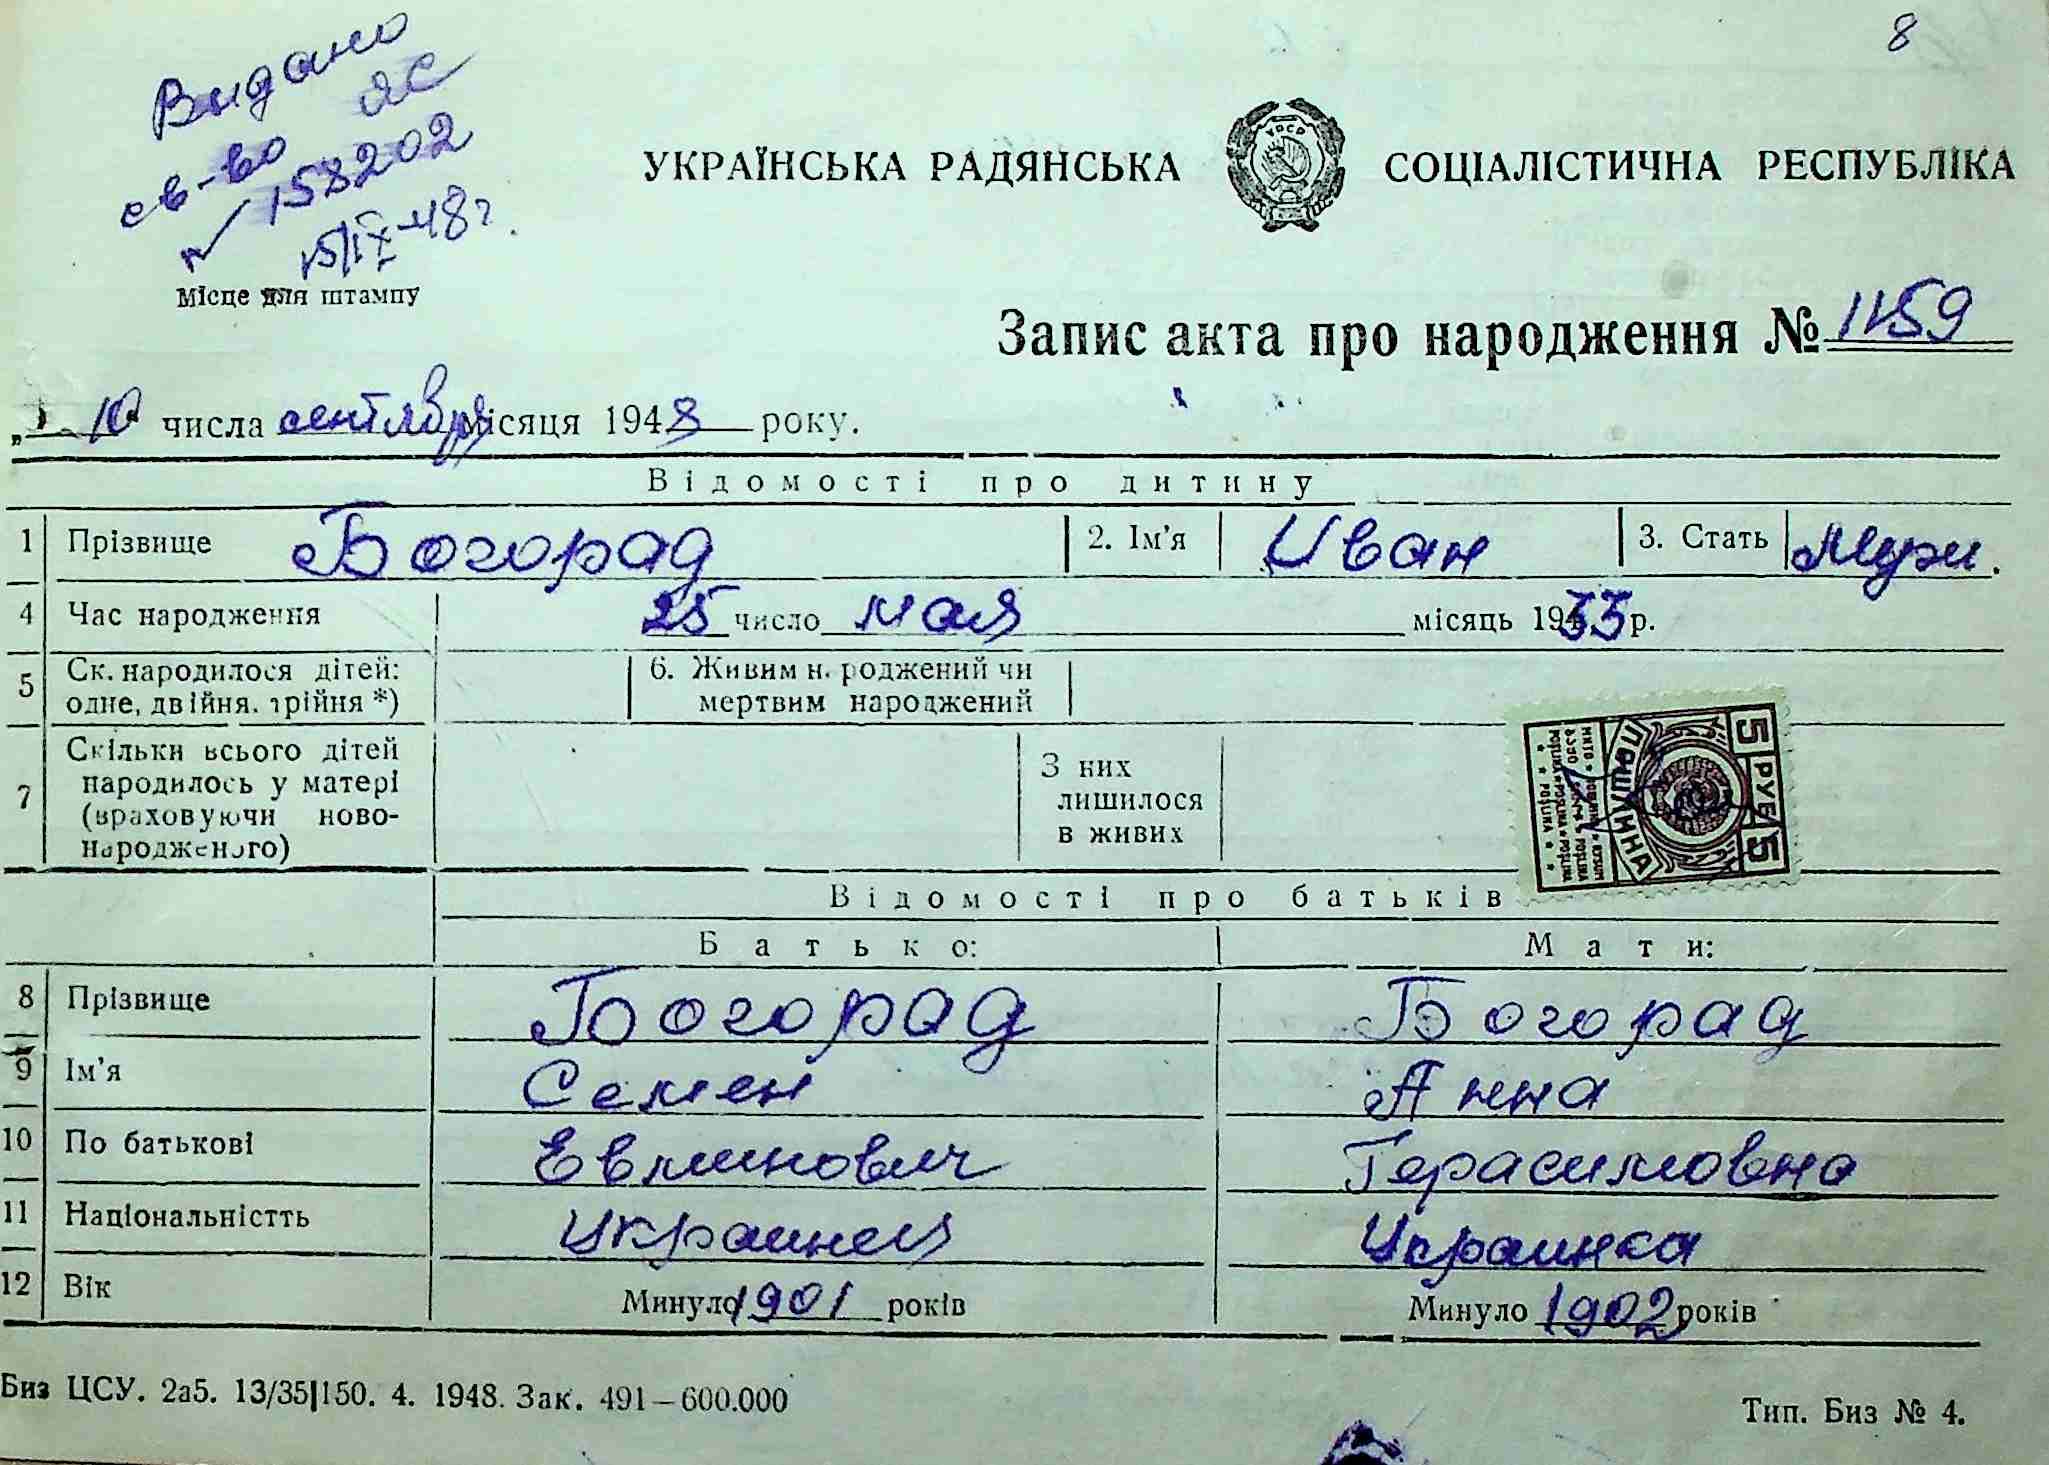 8
Видано
св-во ЯС
158202
15/IX-48г.
Місце для штампу
УКРАЇНСЬКА РАДЯНСЬКА СОЦІАЛІСТИЧНА РЕСПУБЛІКА
УРСР
Запис акта про народження № 1159
„ 10 числа сентября місяця 1948 року.
Відомості про дитину
1 Прізвище Богорад 2. Ім'я Иван 3. Стать Муж.
4 Час народження 25 число мая місяць 1933 р.
5 Ск. народилося дітей: одне, двійня, трійня *) 6. Живим народжений чи мертвим народжений
7 Скільки всього дітей народилось у матері (враховуючи новонародженого) З них лишилося в живих
5 РУБ 5
ПОШЛИНА
Відомості про батьків
Батько: Мати:
8 Прізвище Богорад Богорад
9 Ім'я Семен Анна
10 По батькові Евминович Герасимовна
11 Національністть Украинец Украинка
12 Вік Минуло 1901 років Минуло 1902 років
Биз ЦСУ. 2а5. 13/35|150. 4. 1948. Зак. 491—600.000
Тип. Биз № 4.